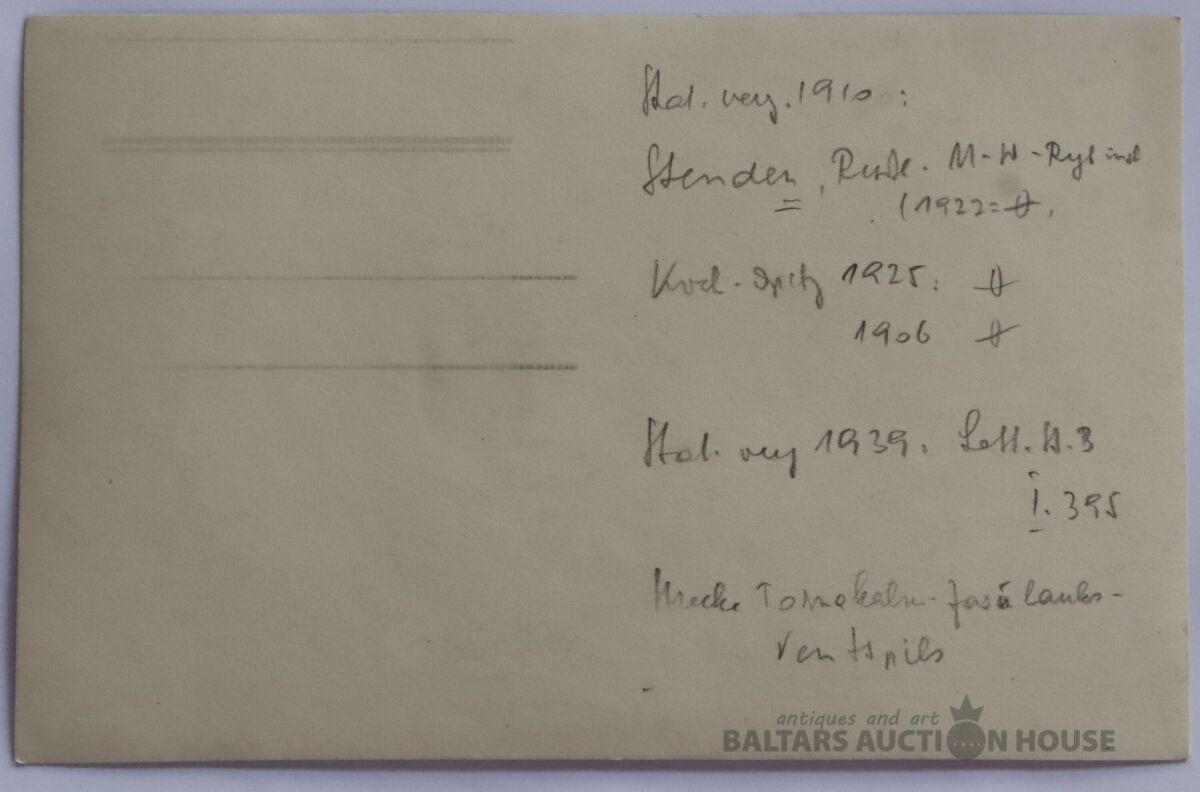 Stat. verz. 1910 :
Stenden, Russl. M-W-Ryb
(1922=
Koch-Opitz 1925:
1906
Stat. verz 1939: Lett. St. B
I. 395
Strecke Tornakaln-Jasulauks-
Ventspils
antiques and art
BALTARS AUCTION HOUSE